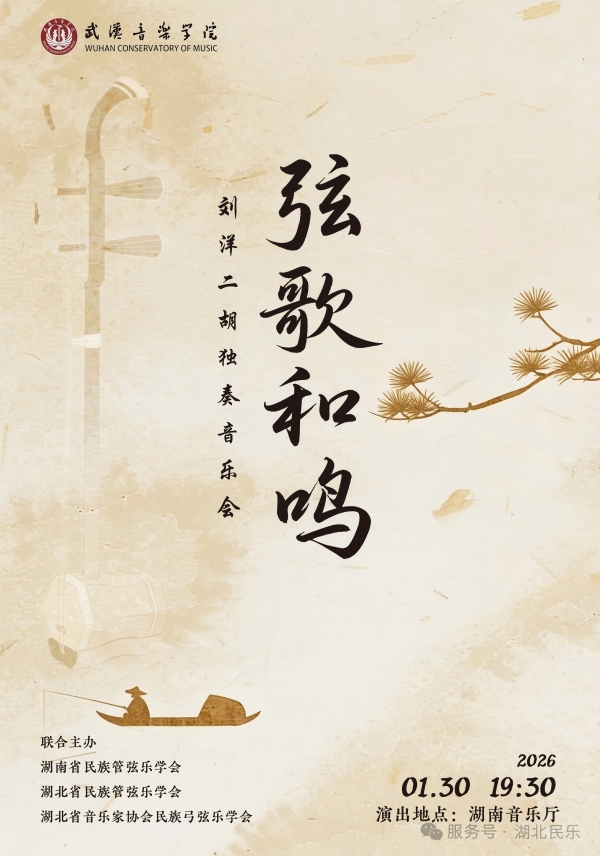 武漢音樂学院
WUHAN CONSERVATORY OF MUSIC
弦歌和鸣
刘洋二胡独奏音乐会
联合主办
湖南省民族管弦乐学会
湖北省民族管弦乐学会
湖北省音乐家协会民族弓弦乐学会
2026
01.30 19:30
演出地点：湖南音乐厅
服务号·湖北民乐